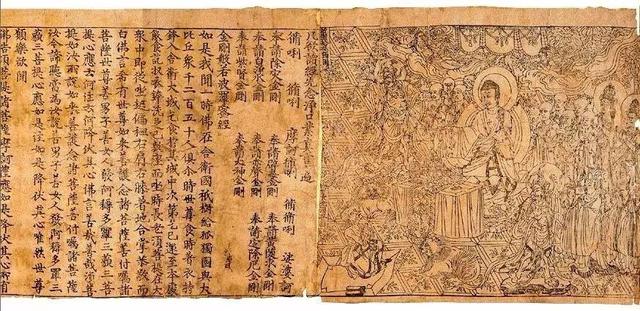 凡欲讀經先念淨口業真言一遍
脩唎 脩唎 摩訶脩唎 脩脩唎 娑婆訶
奉請除災金剛 奉請辟毒金剛 奉請黃隨求金剛
奉請白淨水金剛 奉請赤聲金剛 奉請定除厄金剛
奉請紫賢金剛 奉請大神金剛
金剛般若波羅蜜經
如是我聞一時佛在舍衛國祇樹給孤獨園與大
比丘衆千二百五十人俱尒時世尊食時著衣持
鉢入舍衛大城乞食於其城中次第乞已還至本處
飯食訖收衣鉢洗足已敷座而坐時長老須菩提在大
衆中即從座起偏袒右肩右膝著地合掌恭敬而
白佛言希有世尊如來善護念諸菩薩善付囑諸
菩薩世尊善男子善女人發阿耨多羅三藐三菩
提心應云何住云何降伏其心佛言善哉善哉須菩
提如汝所說如來善護念諸菩薩善付囑諸菩薩
汝今諦聽當為汝說善男子善女人發阿耨多羅三
藐三菩提心應如是住如是降伏其心唯然世尊
願樂欲聞
佛告須菩提諸菩薩摩訶薩應如是降伏其心所有